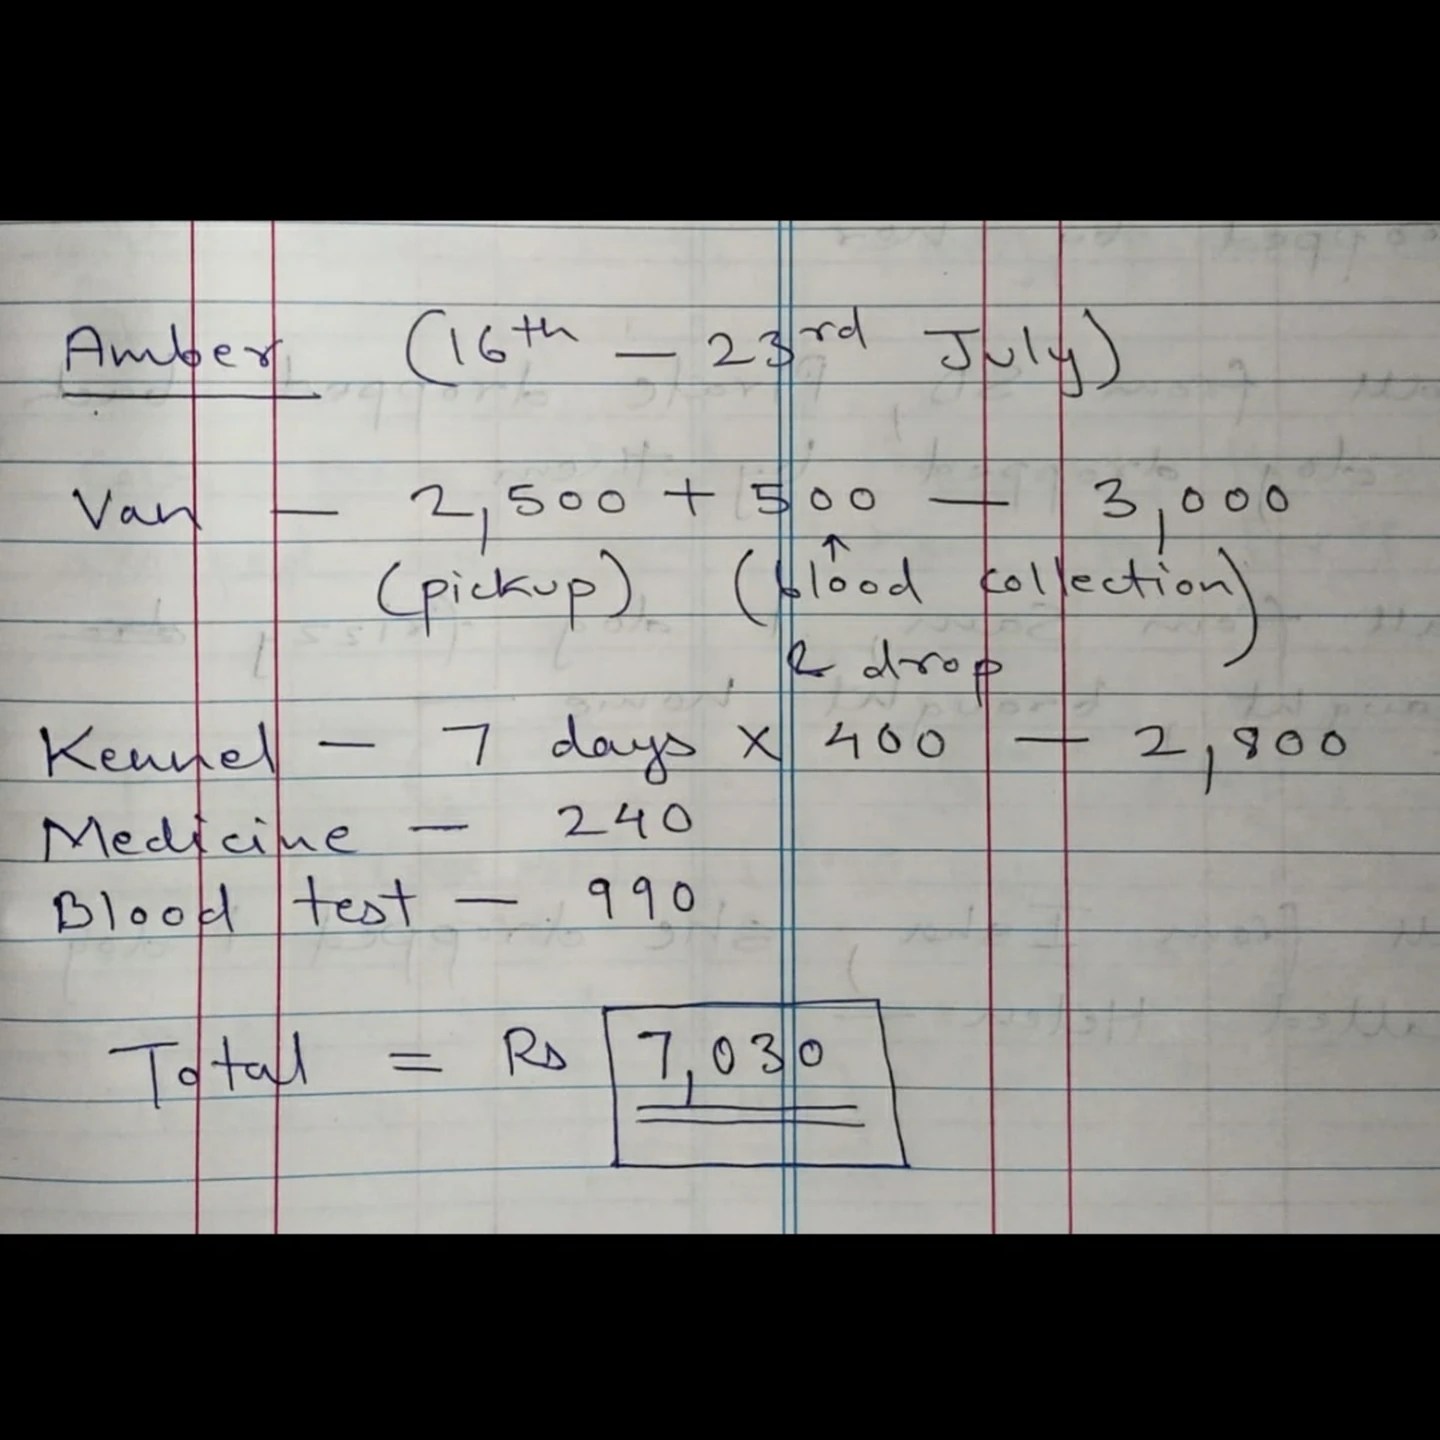 Amber (16th — 23rd July)
Van — 2,500 + 500 — 3,000
(pickup) (blood collection)
& drop
Kennel — 7 days x 400 — 2,800
Medicine — 240
Blood test — 990
Total = Rs 7,030